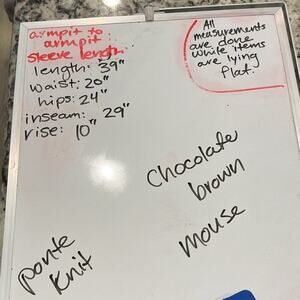 armpit to
armpit:
sleeve length:
length: 39"
waist: 20"
hips: 24"
inseam: 29"
rise: 10"
All
measurements
are done
while items
are lying
flat.
Chocolate
brown
mouse
ponte
knit